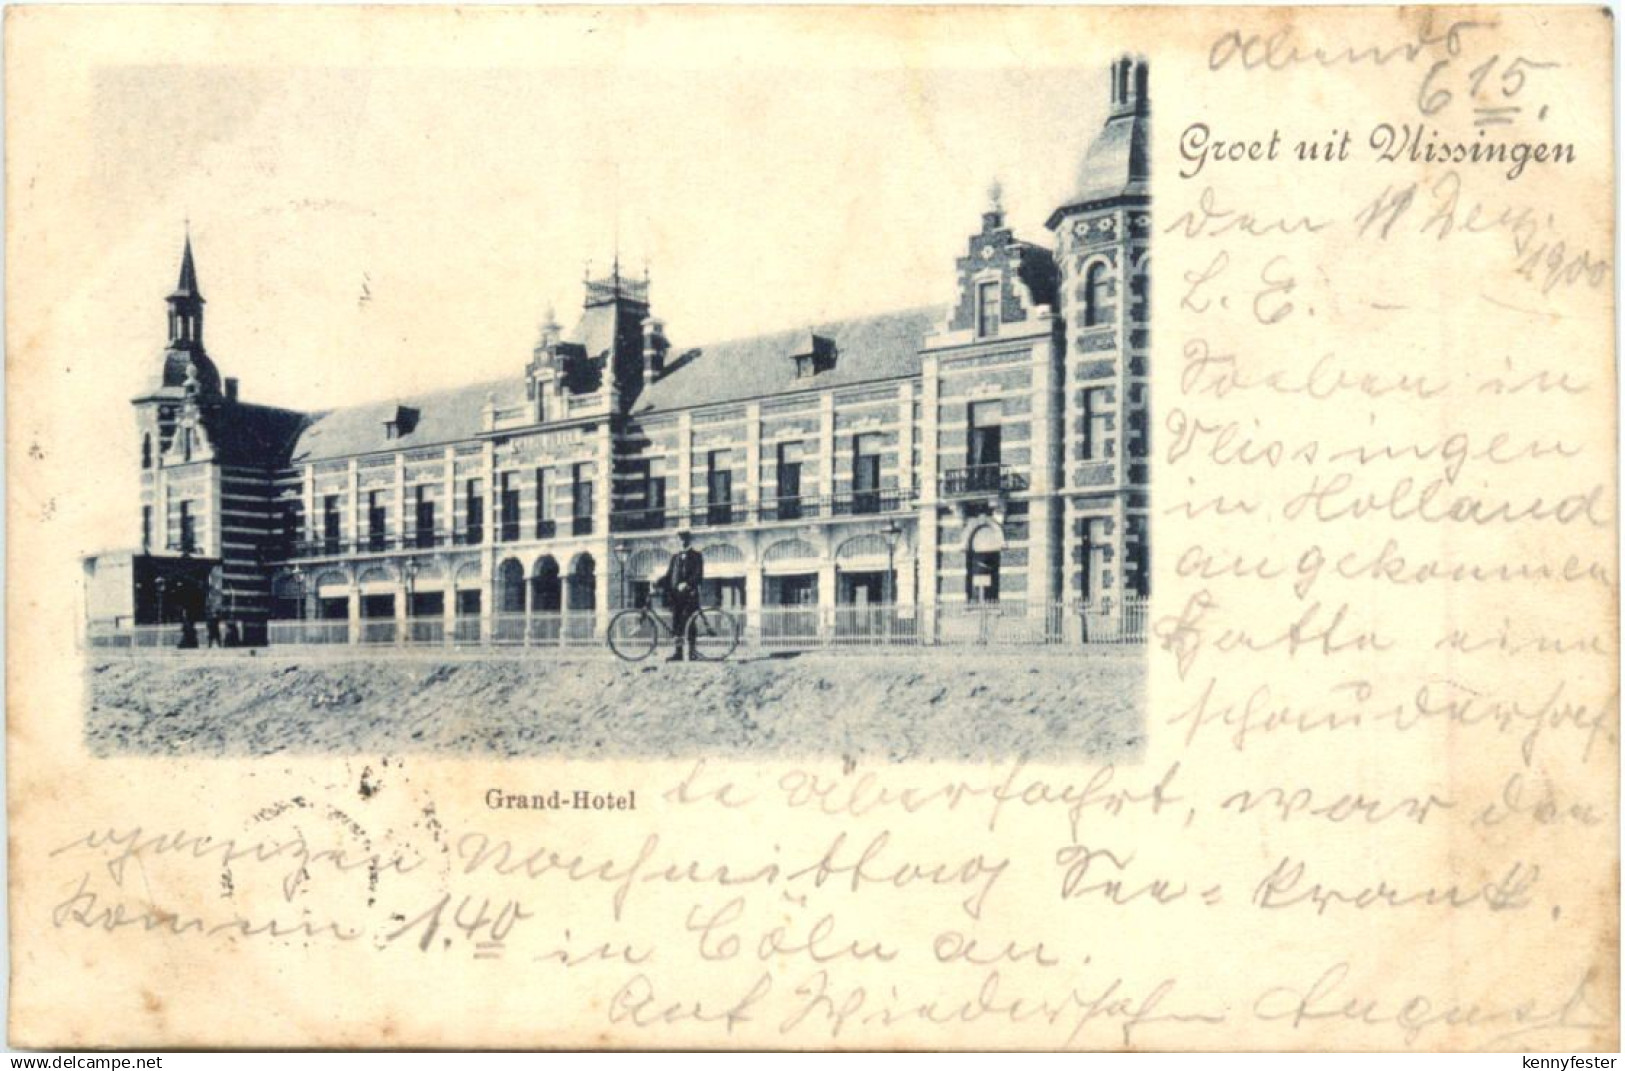 abends
6 15.
Groet uit Vlissingen
den 11 Dez.
1900
L. E. –
Soeben in
Vlissingen
in Holland
angekommen
Hatte eine
schauderhaf
Grand-Hotel
te Überfahrt, war den
ganzen Nachmittag See=krank.
komme 1.40 in Cöln an.
Auf Wiedersehn August
www.delcampe.net
kennyfester